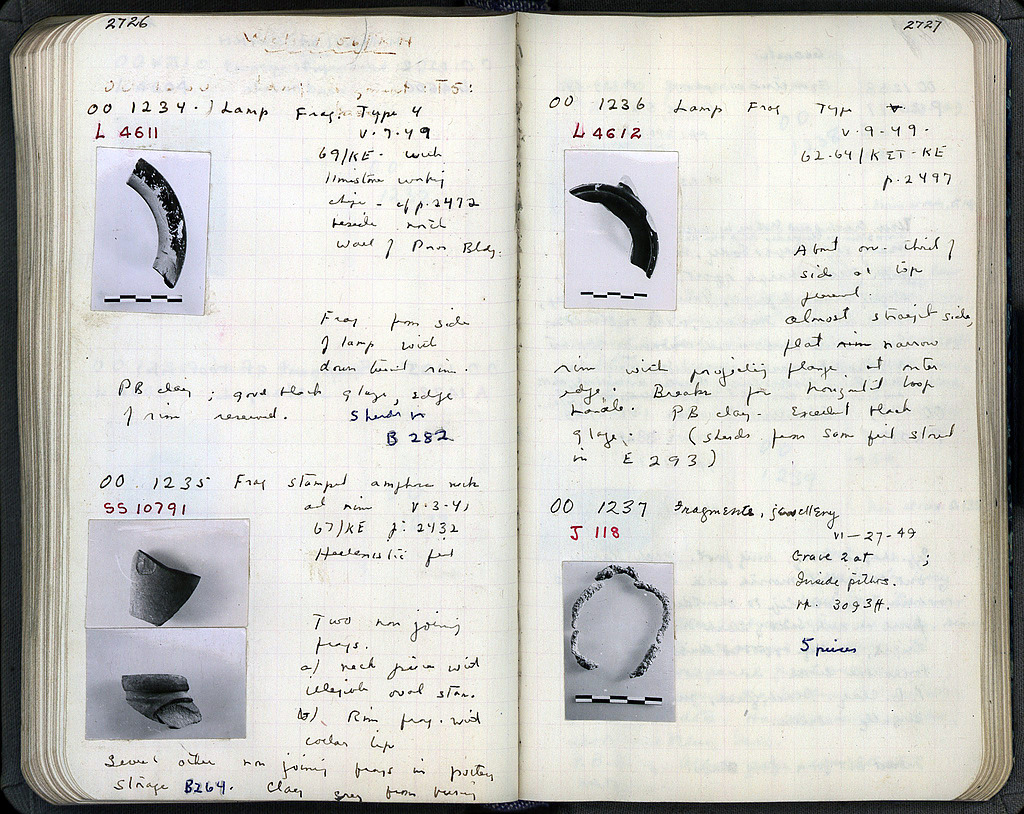 2726
OO 1234. Lamp Frag. Type 4
L 4611
V.9.49
69/KE. with
limestone working
chips - cf p. 2472
beside north
wall of Bldg.
Frag from side
of lamp with
down turned rim.
PB clay; good black glaze, edge
of rim reserved. Sherds in
B 282
OO 1235 Frag stamped amphora neck
SS 10791
and rim V.3.49
67/KE p. 2432
Hellenistic fill
Two non joining
frags.
a) neck piece with
illegible oval stamp.
b) Rim frag. with
collar lip
Several other non joining frags in pottery
storage B264. Clay grey from burning
2727
OO 1236 Lamp Frag Type
L 4612
V.9.49.
62.64/KET-KE
p. 2497
About one third of
side at top
preserved.
almost straight side,
flat rim narrow
rim with projecting flange at outer
edge. Breaks for horizontal loop
handle. PB clay. Excellent black
glaze. (sherds from same fill stored
in E 293)
OO 1237 Fragments, jewellery
J 118
VI-27-49
Grave 2 at ;
Inside pithos.
3093 ff.
5 pieces